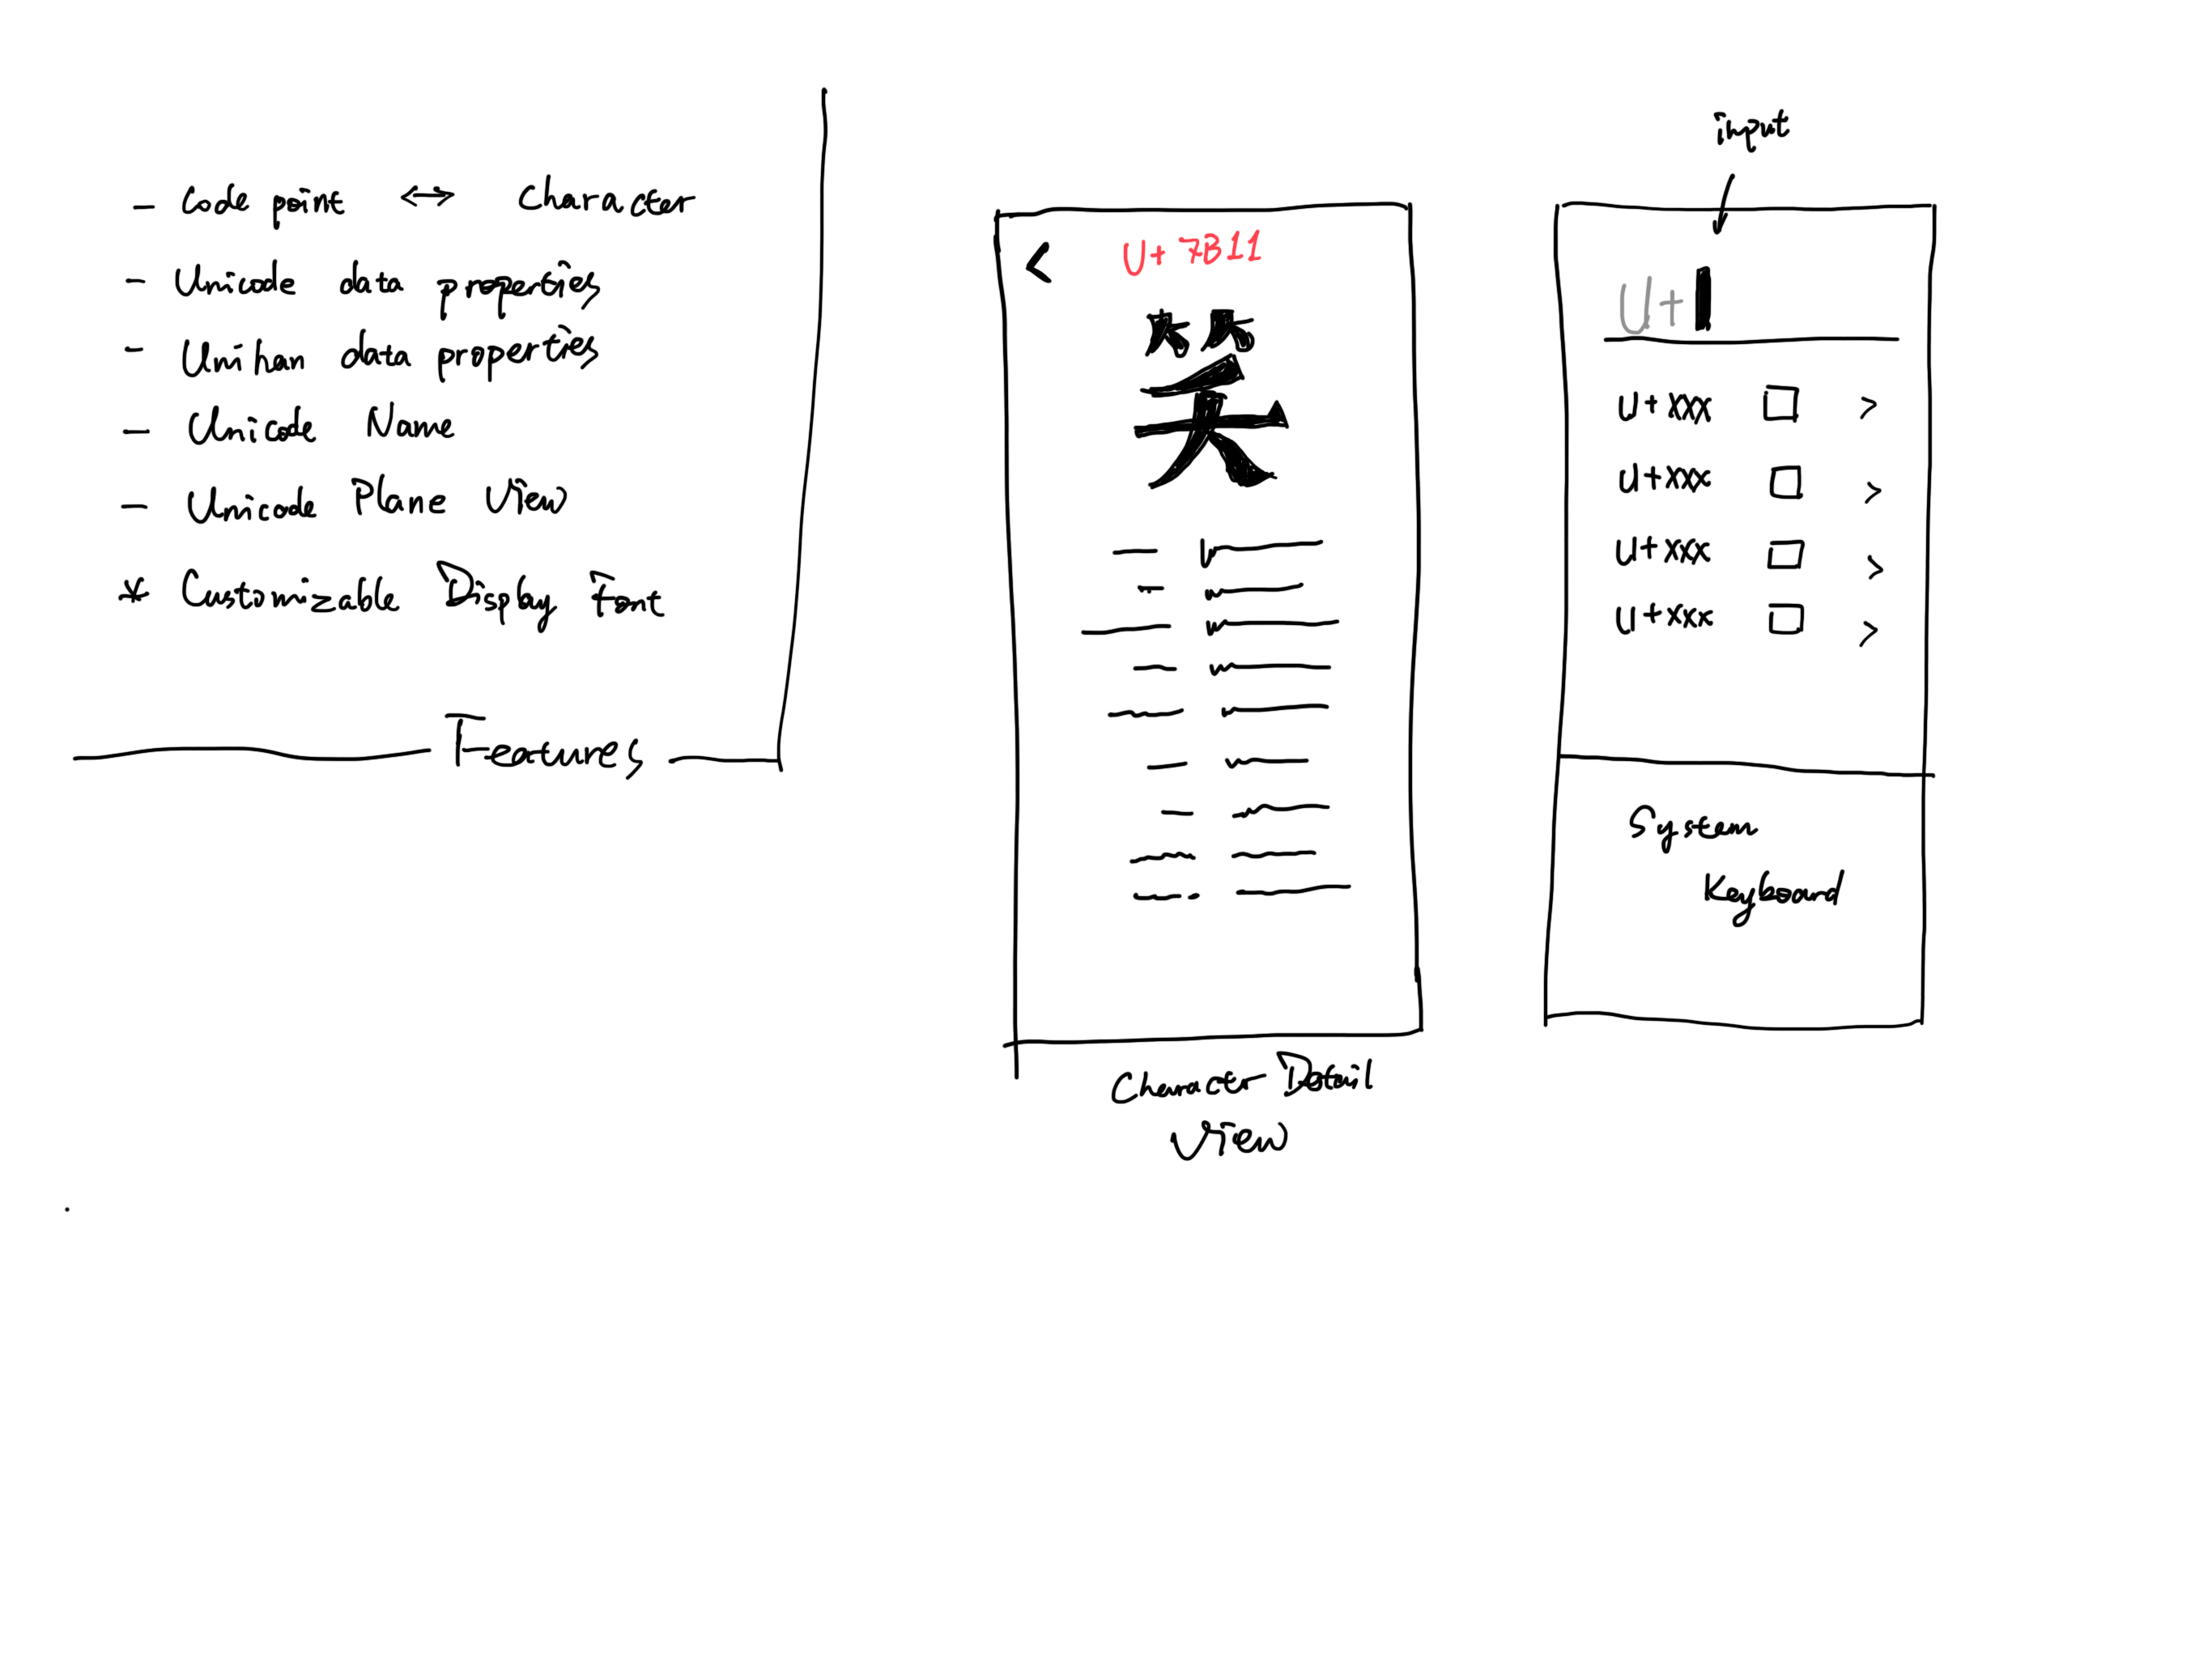 - Code point ↔ Character
- Unicode data properties
- Unihan data properties
- Unicode Name
- Unicode Plane View
* Customizable Display Font
Features
<
U+7B11
笑
Character Detail
View
input
U+
U+XXX □ >
U+XXX □ >
U+XXX □ >
U+XXX □ >
System
Keyboard